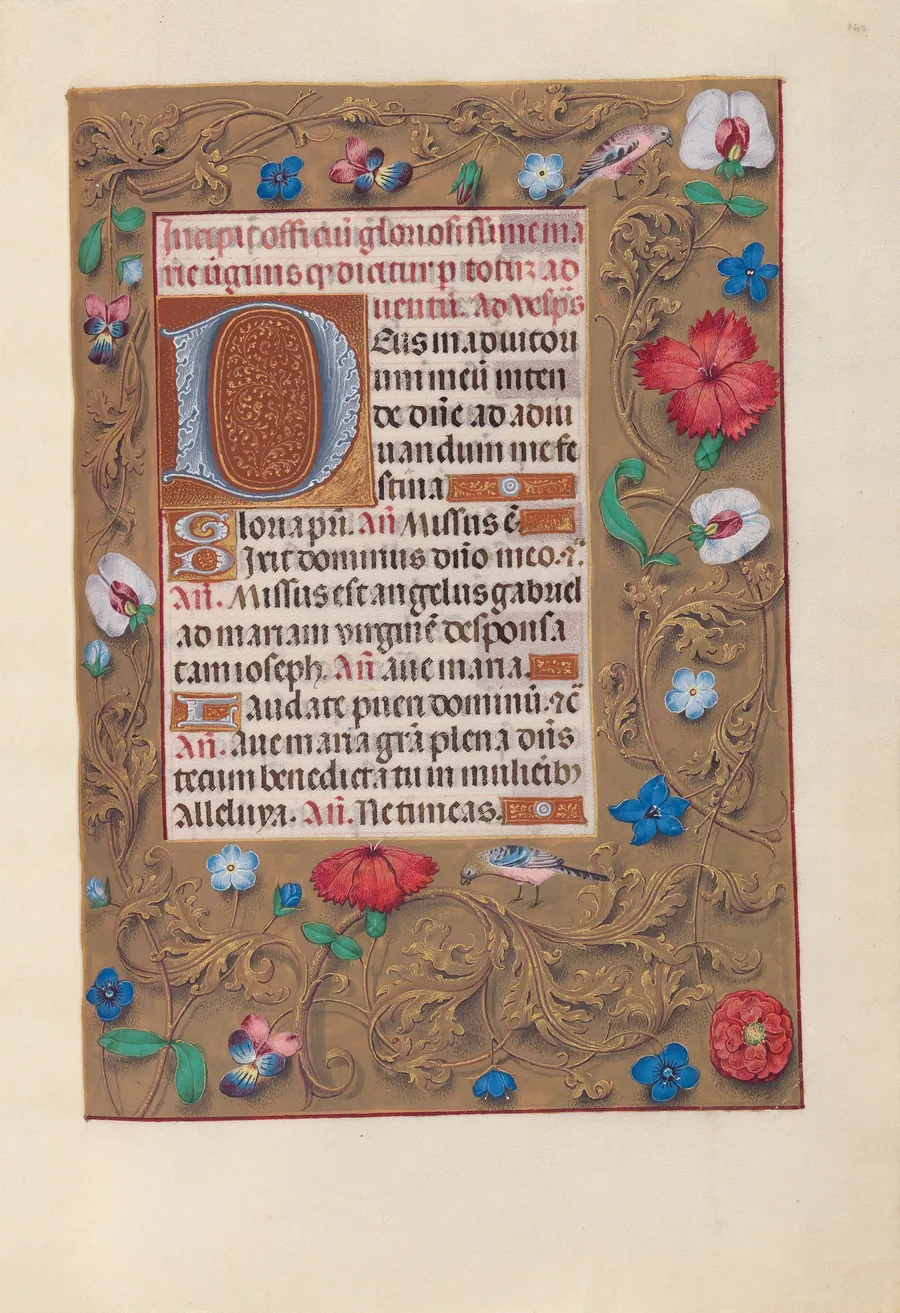 Incipit offi ciū gloriosissime ma
rie ūginis q̄ dicitur p̄ totuz ad
uentū. Ad vesp̄s
Deus in adiutori
um meū inten
de dñe ad adiu
uandum me fe
stina
Gloria pr̄i. Añ Missus ē
Dixit dominus dño meo. ⁊c̄
Añ. Missus est angelus gabriel
ad mariam virginē desponsa
tam ioseph. Añ aue maria.
Laudate pueri dominū. ⁊c̄
Añ. aue maria grā plena dñs
tecum benedicta tu in mulieribꝰ
Alleluya. Añ. Ne timeas.